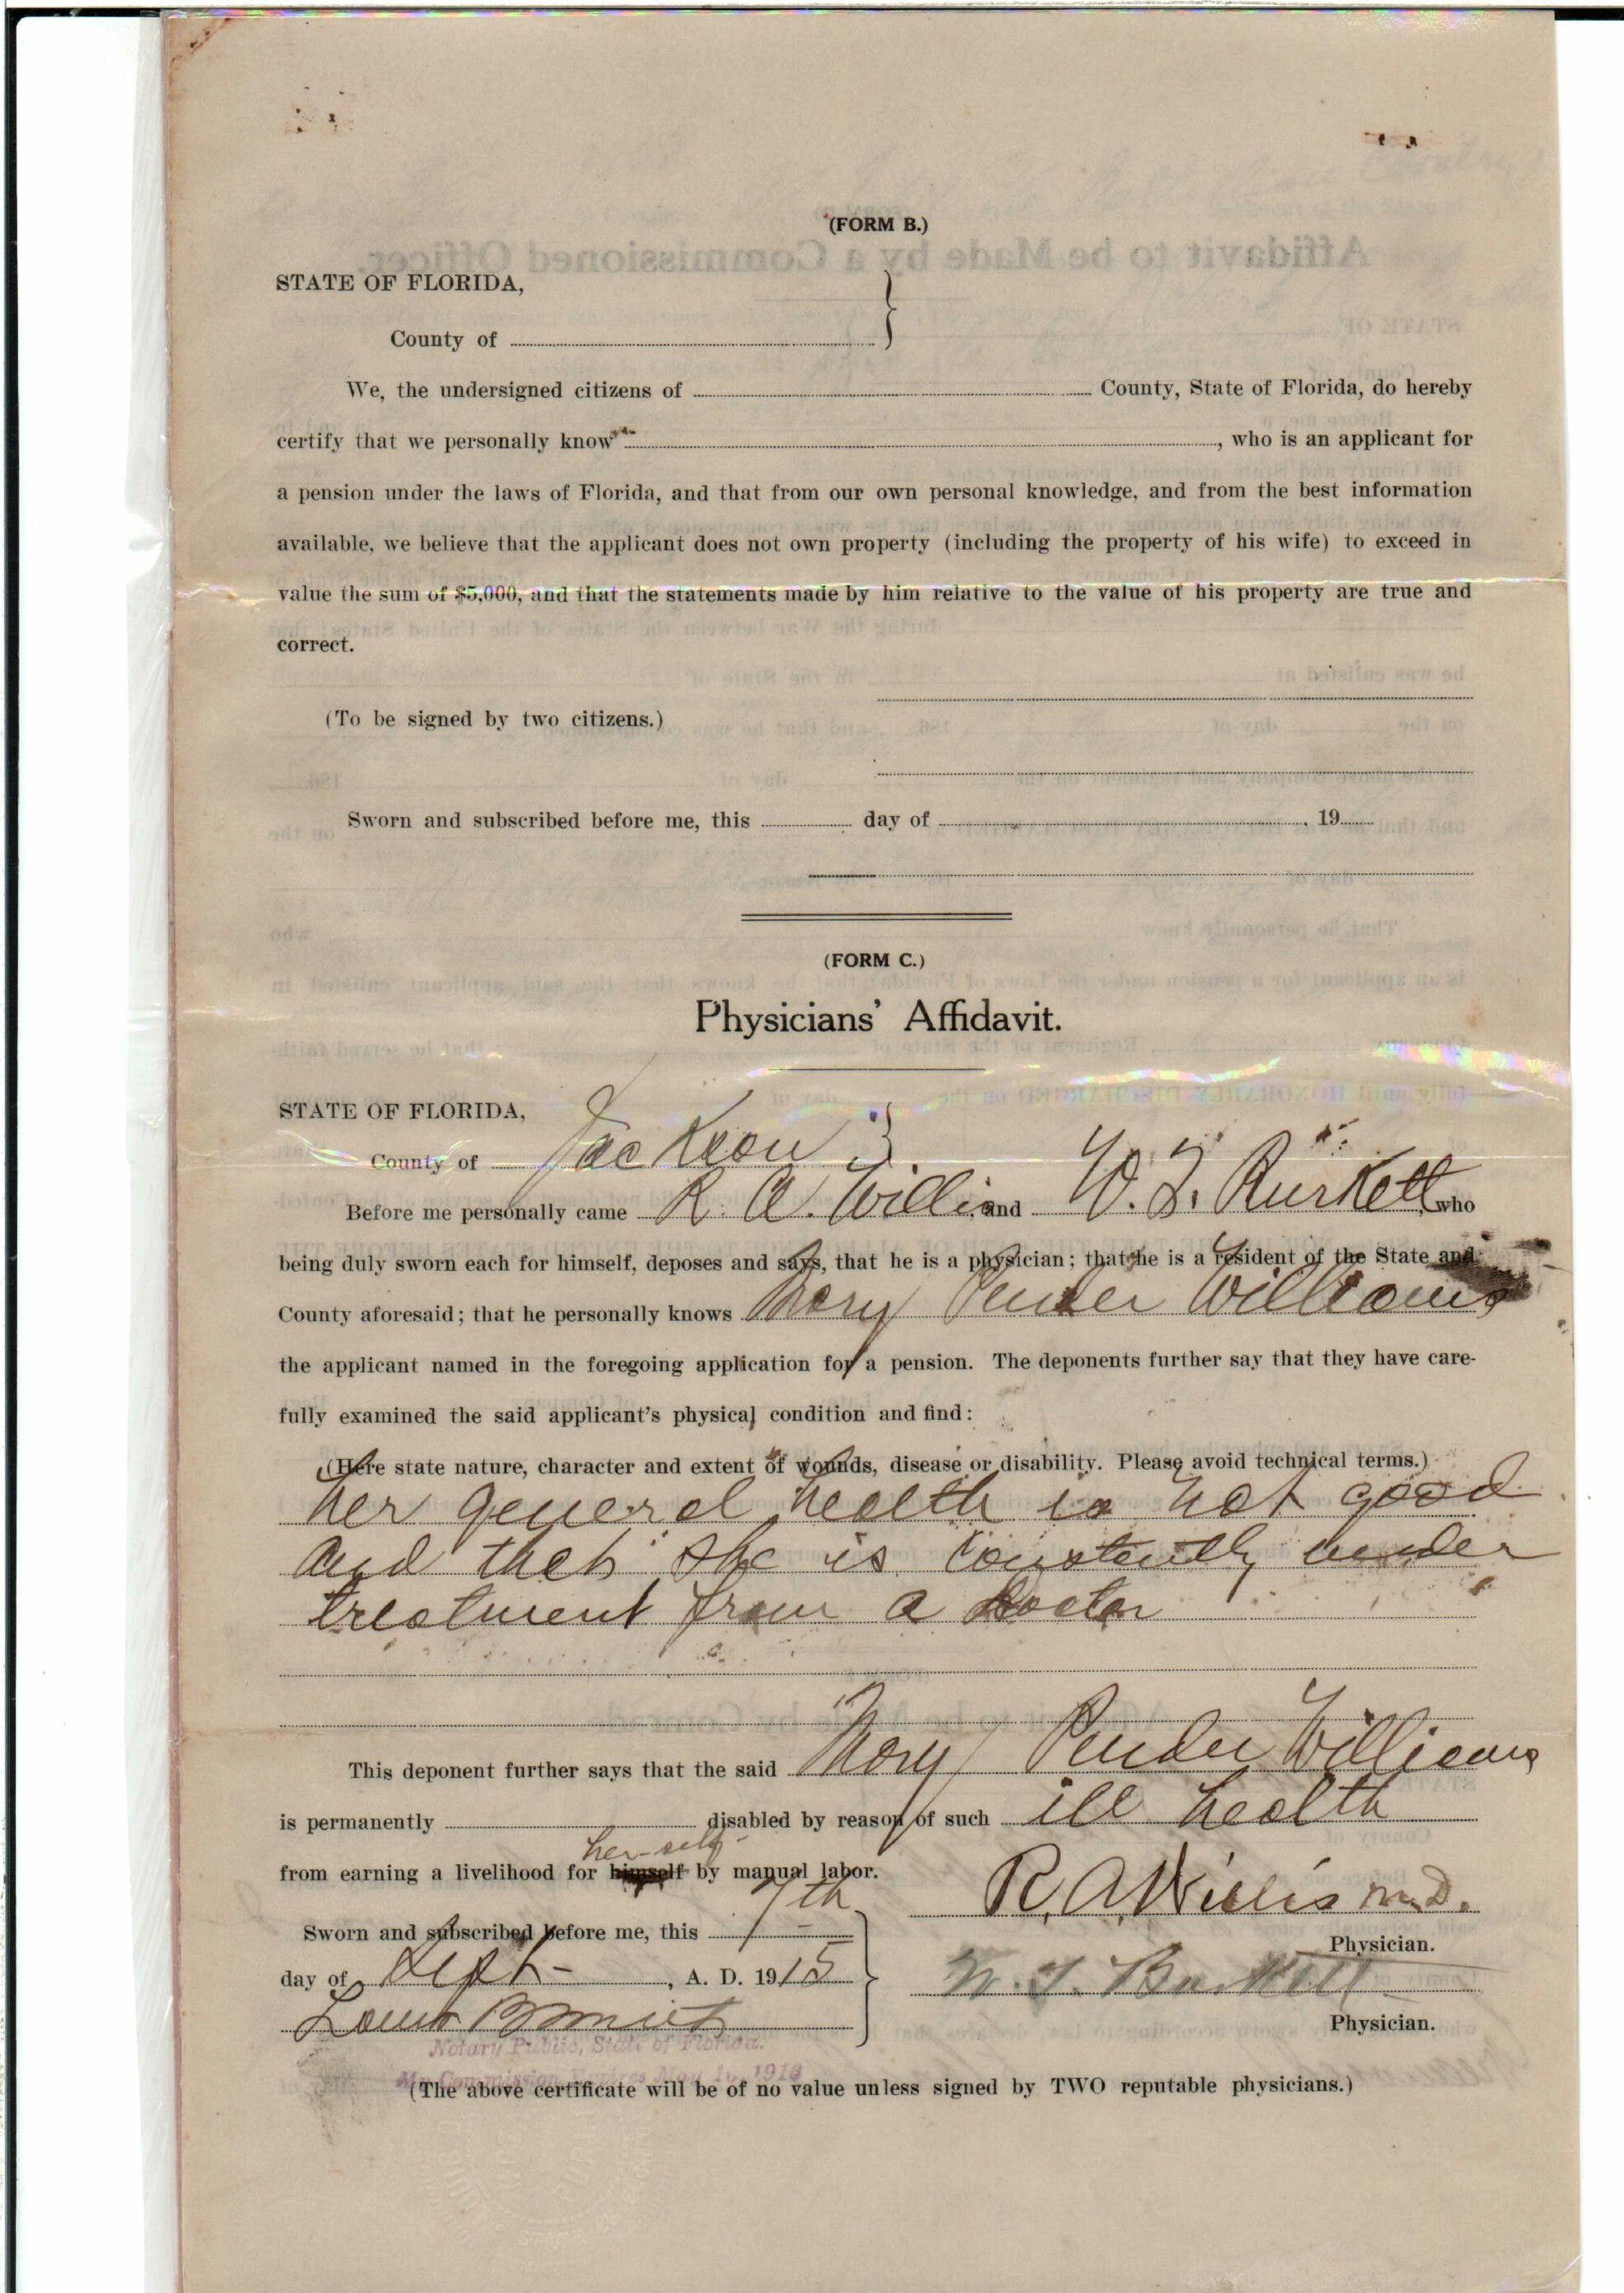 (FORM B.)
STATE OF FLORIDA,
County of
We, the undersigned citizens of County, State of Florida, do hereby
certify that we personally know , who is an applicant for
a pension under the laws of Florida, and that from our own personal knowledge, and from the best information
available, we believe that the applicant does not own property (including the property of his wife) to exceed in
value the sum of $5,000, and that the statements made by him relative to the value of his property are true and
correct.
(To be signed by two citizens.)
Sworn and subscribed before me, this day of , 19
(FORM C.)
Physicians' Affidavit.
STATE OF FLORIDA,
County of Jackson
Before me personally came R. A. Willis and W. T. Burkett who
being duly sworn each for himself, deposes and says, that he is a physician; that he is a resident of the State and
County aforesaid; that he personally knows Mary Pender Williams
the applicant named in the foregoing application for a pension. The deponents further say that they have care-
fully examined the said applicant's physical condition and find:
(Here state nature, character and extent of wounds, disease or disability. Please avoid technical terms.)
her general health is not good
and that she is constantly under
treatment from a Doctor
This deponent further says that the said Mary Pender Williams
is permanently disabled by reason of such ill health
her-self
from earning a livelihood for himself by manual labor.
R. A. Willis M.D.
Sworn and subscribed before me, this 7th
Physician.
day of Sept- , A. D. 1915
W. T. Burkett
Physician.
Notary Public, State of Florida.
My Commission Expires 1916
(The above certificate will be of no value unless signed by TWO reputable physicians.)